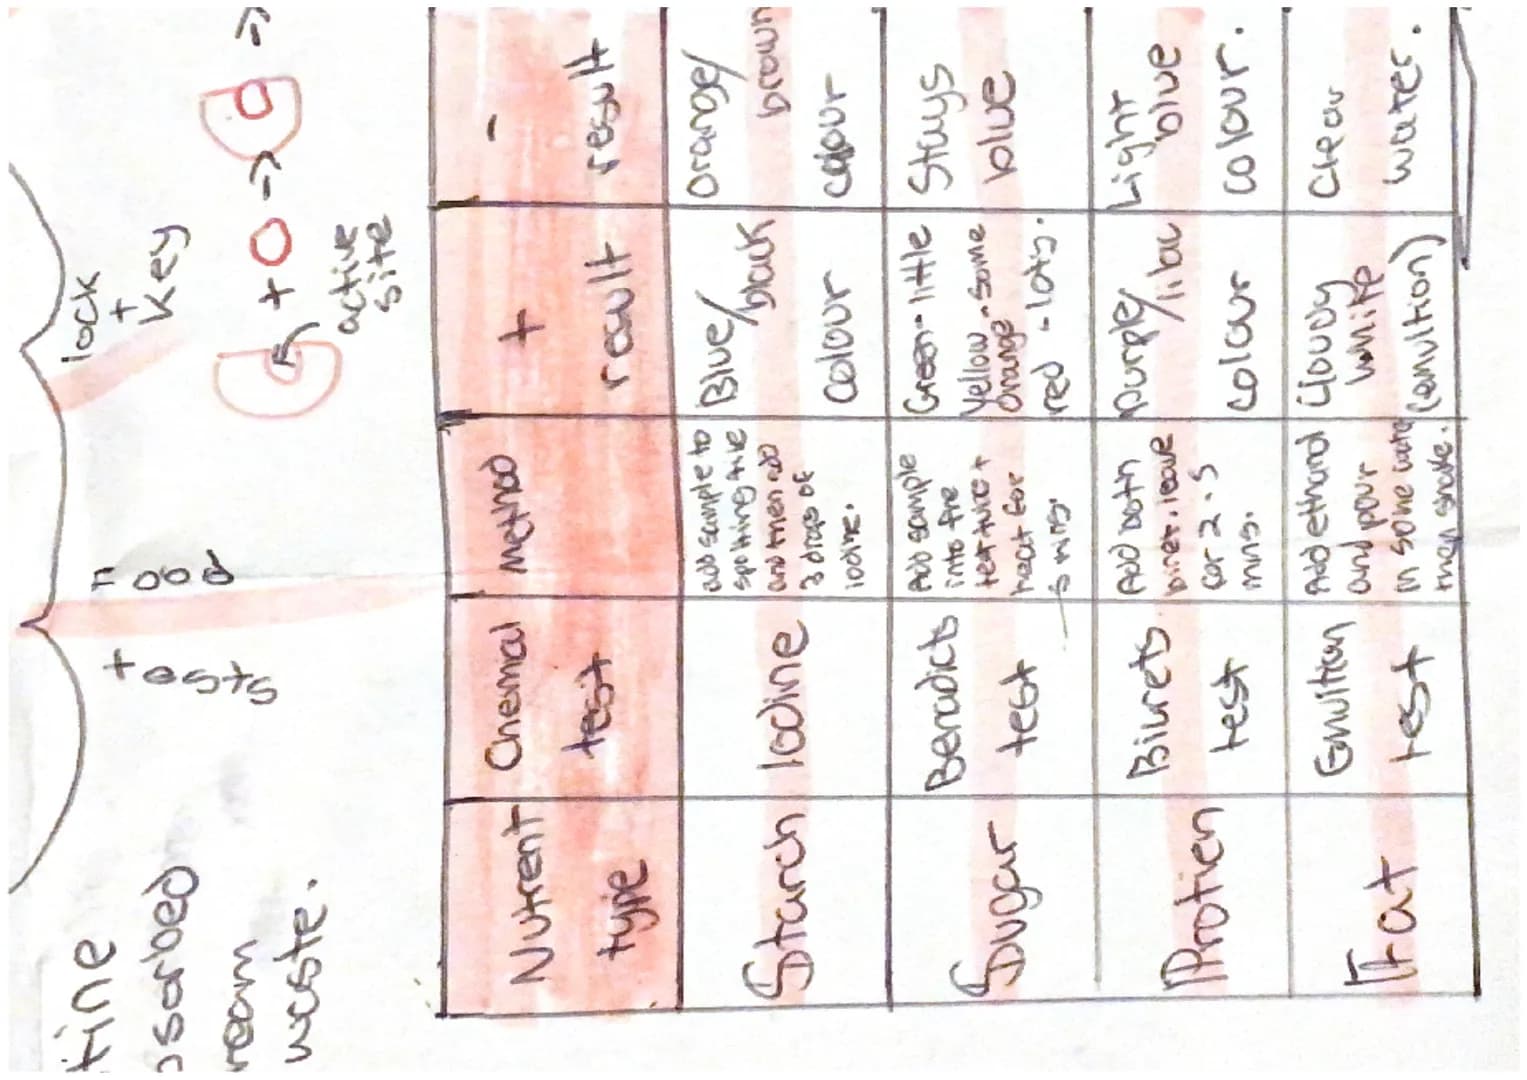 tine
sorbed
ream
waste.
Food
tests
lock
+
Key
+
active
site
Nutrient
type
Chemical
test
Method
+
result
-
result
Starch
Iodine
add sample to
spotting tile
and then add
3 drops of
iodine.
Blue/
black
colour
orange/
brown
colour
Sugar
Benadicts
test
Add sample
into the
test tube +
heat for
5 mins.
Green - little
Yellow - some
orange
red - lots.
Stays
blue
Protien
Biurets
test
Add both
biuret. leave
for 2.5
mins.
purple/
lilac
colour
Light
blue
colour.
Fat
Emultion
test
Add ethanol
and pour
in some water
then shake.
Cloudy
white
(emultion)
Clear
water.